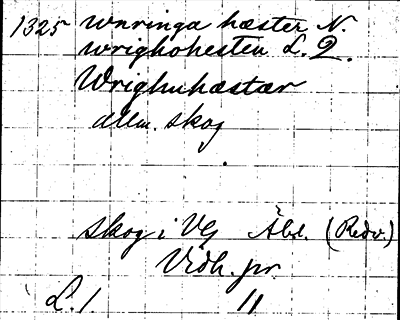 1325 wnringa hæster N.
wrighohesten L. 2.
Wrighuhæstær
allm. skog
skog i Vg Äbl. (Redv.)
Vidh. pr.
L. 1. 11